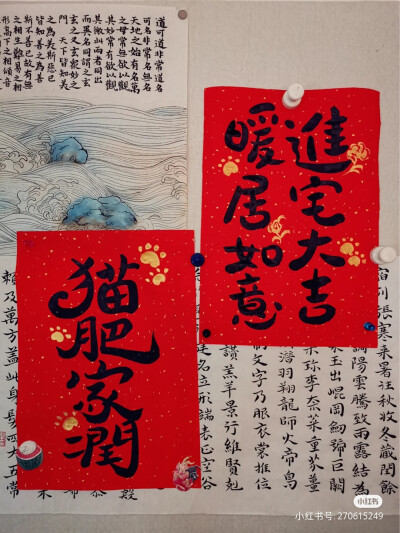 道可道非常道名
可名非常名無名
天地之始有名萬
之母常無欲以觀
其妙常有欲以觀
其徼此兩者同出
而異名同謂之玄
玄之又玄衆妙之
門 天下皆知美
之為美斯惡已
皆知善之為善
斯不善已故有無
之相生難易之相
形高下之相傾音
進宅大吉
暖居如意
猫肥家潤
張寒來暑往秋冬藏閏餘
調陽雲騰致雨露結為
玉出崐岡劍號巨闕
珍李柰菜重芥薑
潛羽翔龍師火帝鳥
制文字乃服衣裳推位
讚羔羊景行維賢剋
名立形端表正空谷
賴及萬方蓋此身髮四大五常
小红书
小红书号: 270615249